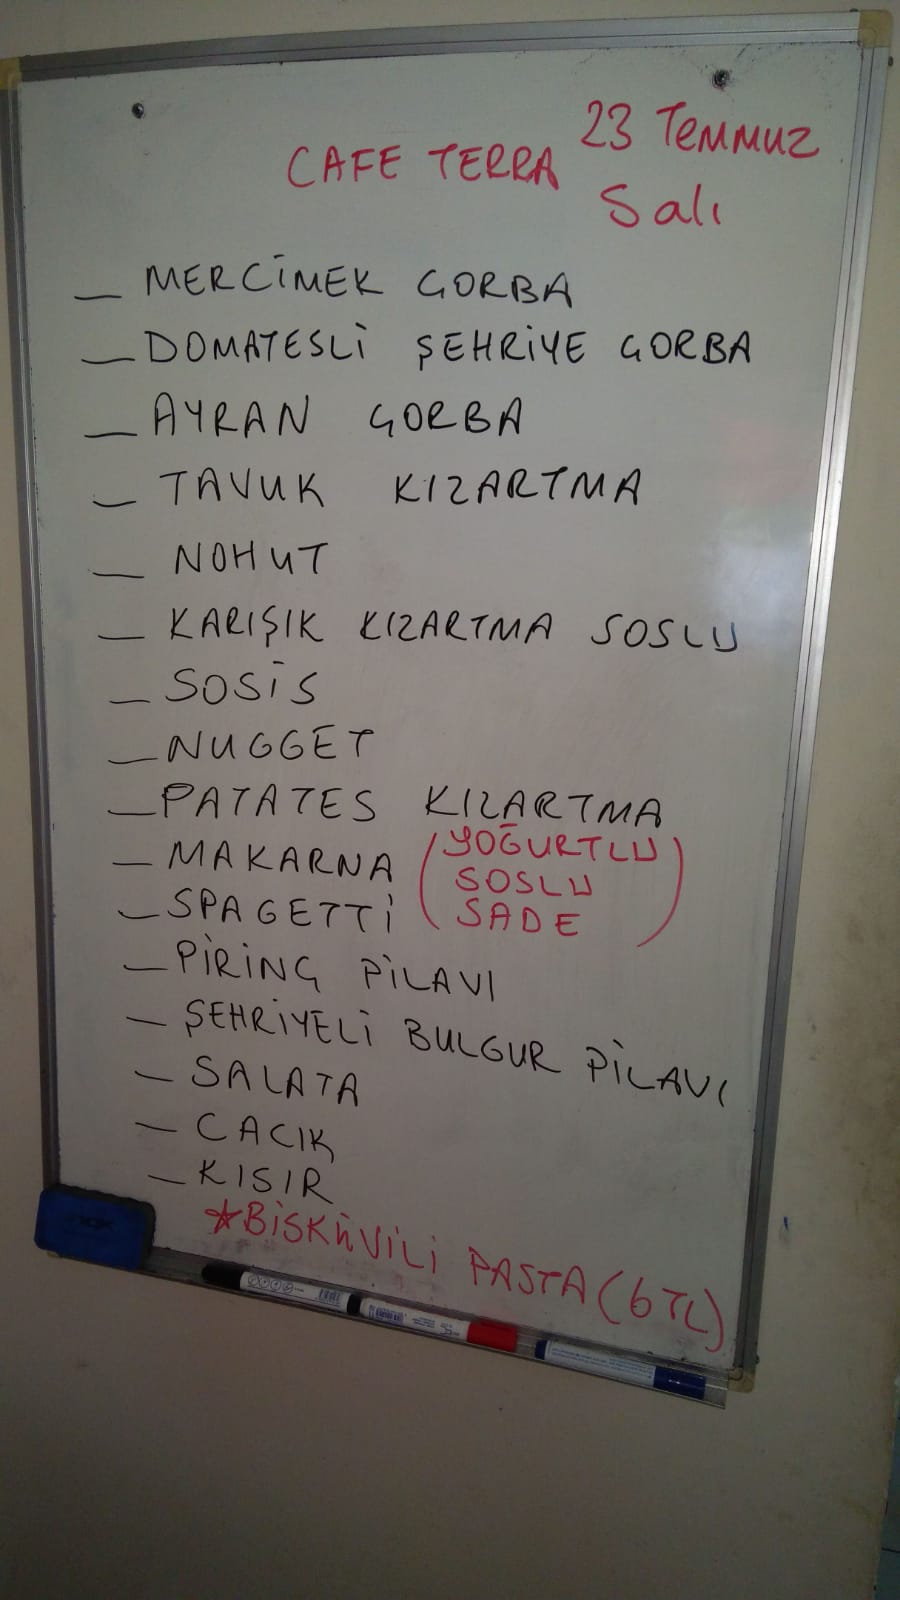 CAFE TERRA 23 Temmuz
Salı
— MERCİMEK ÇORBA
— DOMATESLİ ŞEHRİYE ÇORBA
— AYRAN ÇORBA
— TAVUK KIZARTMA
— NOHUT
— KARIŞIK KIZARTMA SOSLU
— SOSİS
— NUGGET
— PATATES KIZARTMA
— MAKARNA (YOĞURTLU
SOSLU
— SPAGETTİ SADE)
— PİRİNÇ PİLAVI
— ŞEHRİYELİ BULGUR PİLAVI
— SALATA
— CACIK
— KISIR
★BİSKÜVİLİ PASTA (6 TL)